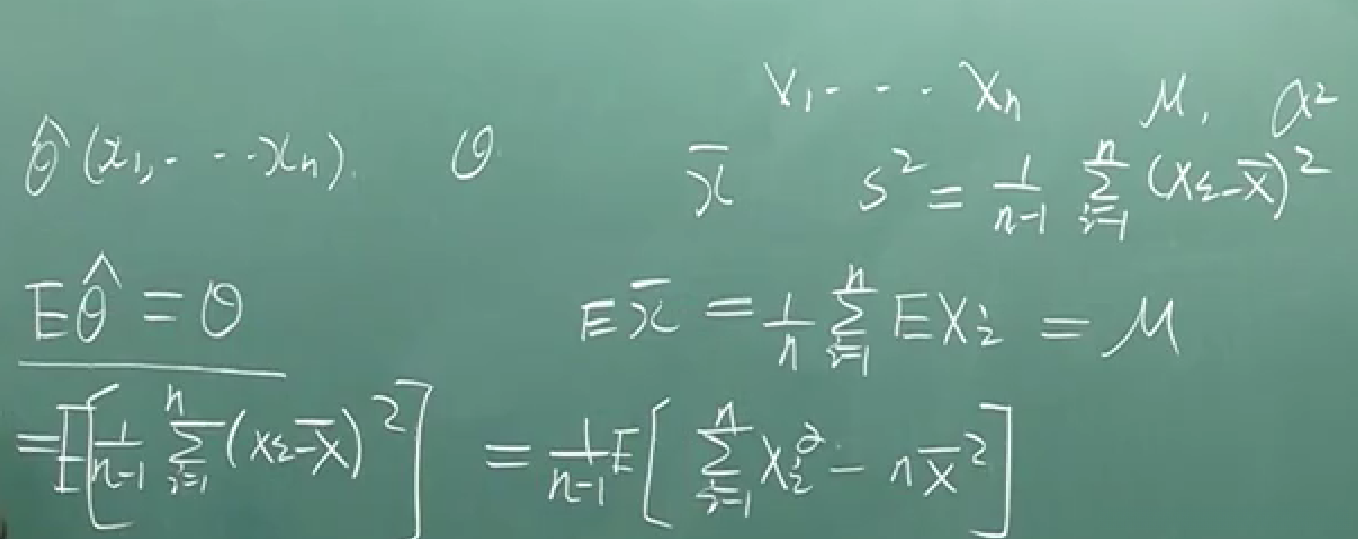 X₁, - - - Xₙ μ, σ²
θ̂ (x₁, - - - xₙ). θ
x̄ S² = 1/(n-1) Σᵢ₌₁ⁿ (Xᵢ - X̄)²
Eθ̂ = θ
Ex̄ = 1/n Σᵢ₌₁ⁿ EXᵢ = μ
= E[1/(n-1) Σᵢ₌₁ⁿ (Xᵢ - X̄)²] = 1/(n-1) E[Σᵢ₌₁ⁿ Xᵢ² - nX̄²]